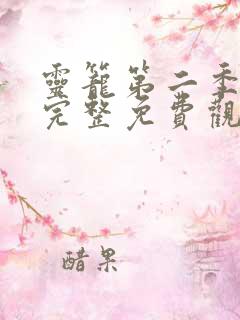 靈籠第二季
完整免費觀
醋果